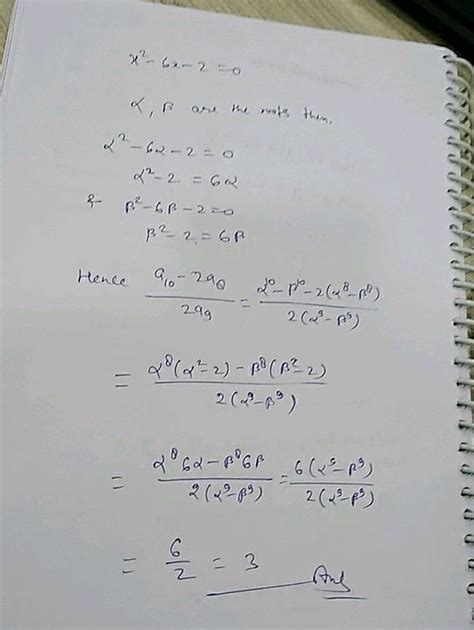 x² - 6x - 2 = 0
α, β are the roots then,
α² - 6α - 2 = 0
α² - 2 = 6α
& β² - 6β - 2 = 0
β² - 2 = 6β
Hence (a₁₀ - 2a₈)/(2a₉) = (α¹⁰ - β¹⁰ - 2(α⁸ - β⁸))/(2(α⁹ - β⁹))
= (α⁸(α² - 2) - β⁸(β² - 2))/(2(α⁹ - β⁹))
= (α⁸6α - β⁸6β)/(2(α⁹ - β⁹)) = (6(α⁹ - β⁹))/(2(α⁹ - β⁹))
= 6/2 = 3 Ans